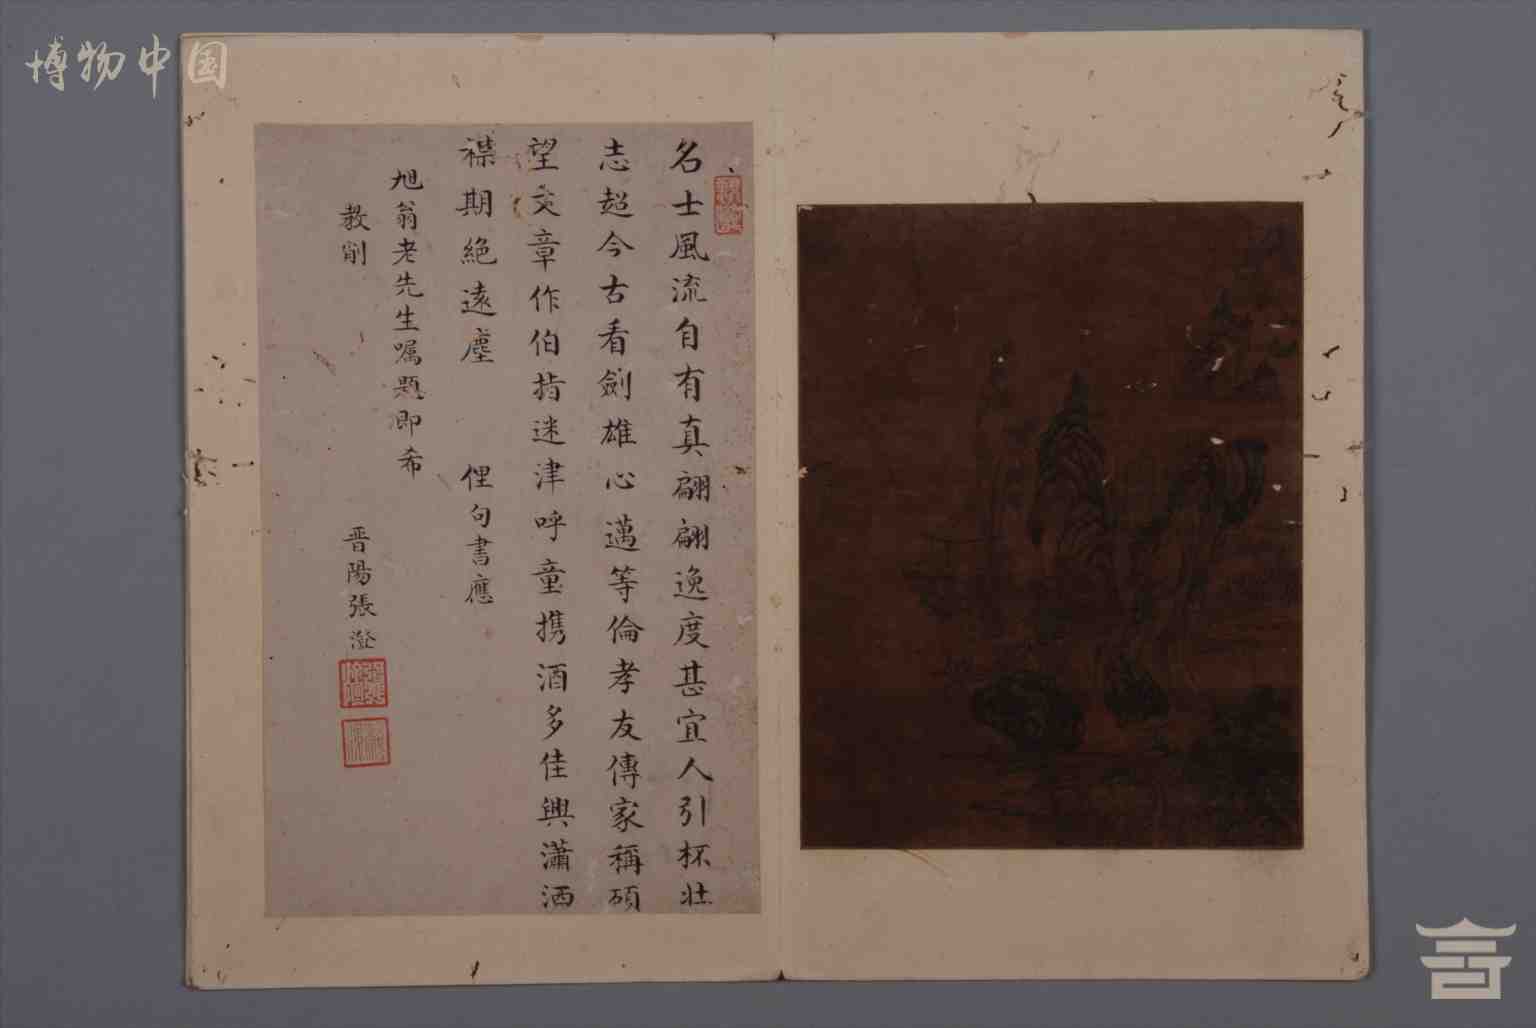 博物中国
名士風流自有真翩翩逸度甚宜人引杯壮
志超今古看劍雄心邁等倫孝友傳家稱碩
望文章作伯指迷津呼童携酒多佳興瀟洒
襟期絶遠塵 俚句書應
旭翁老先生嘱題即希
教削
晋陽張瀅